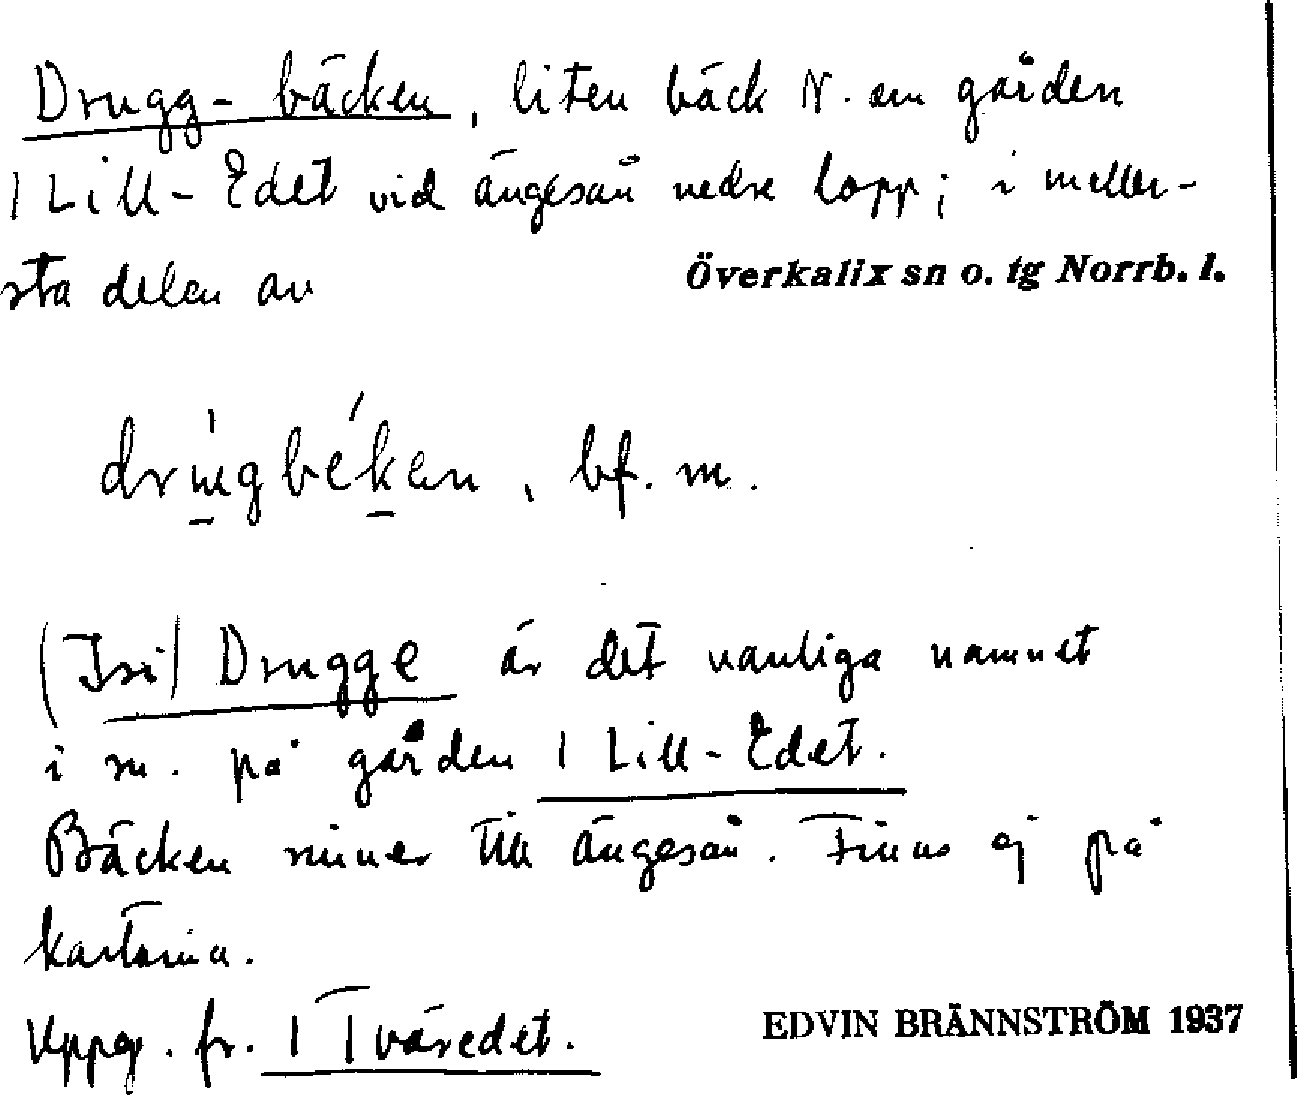 Drugg-bäcken, liten bäck N. om gården
1 Lill-Edet vid ängesån nedre lopp; i meller-
sta delen av Överkalix sn o. tg Norrb. l.
bf. m.
(Isi) Drugge är det vanliga namnet
i m. på gården 1 Lill-Edet.
Bäcken rinner till ängesån. Finns ej på
kartorna.
Uppg. fr. 1 Tväredet. EDVIN BRÄNNSTRÖM 1937